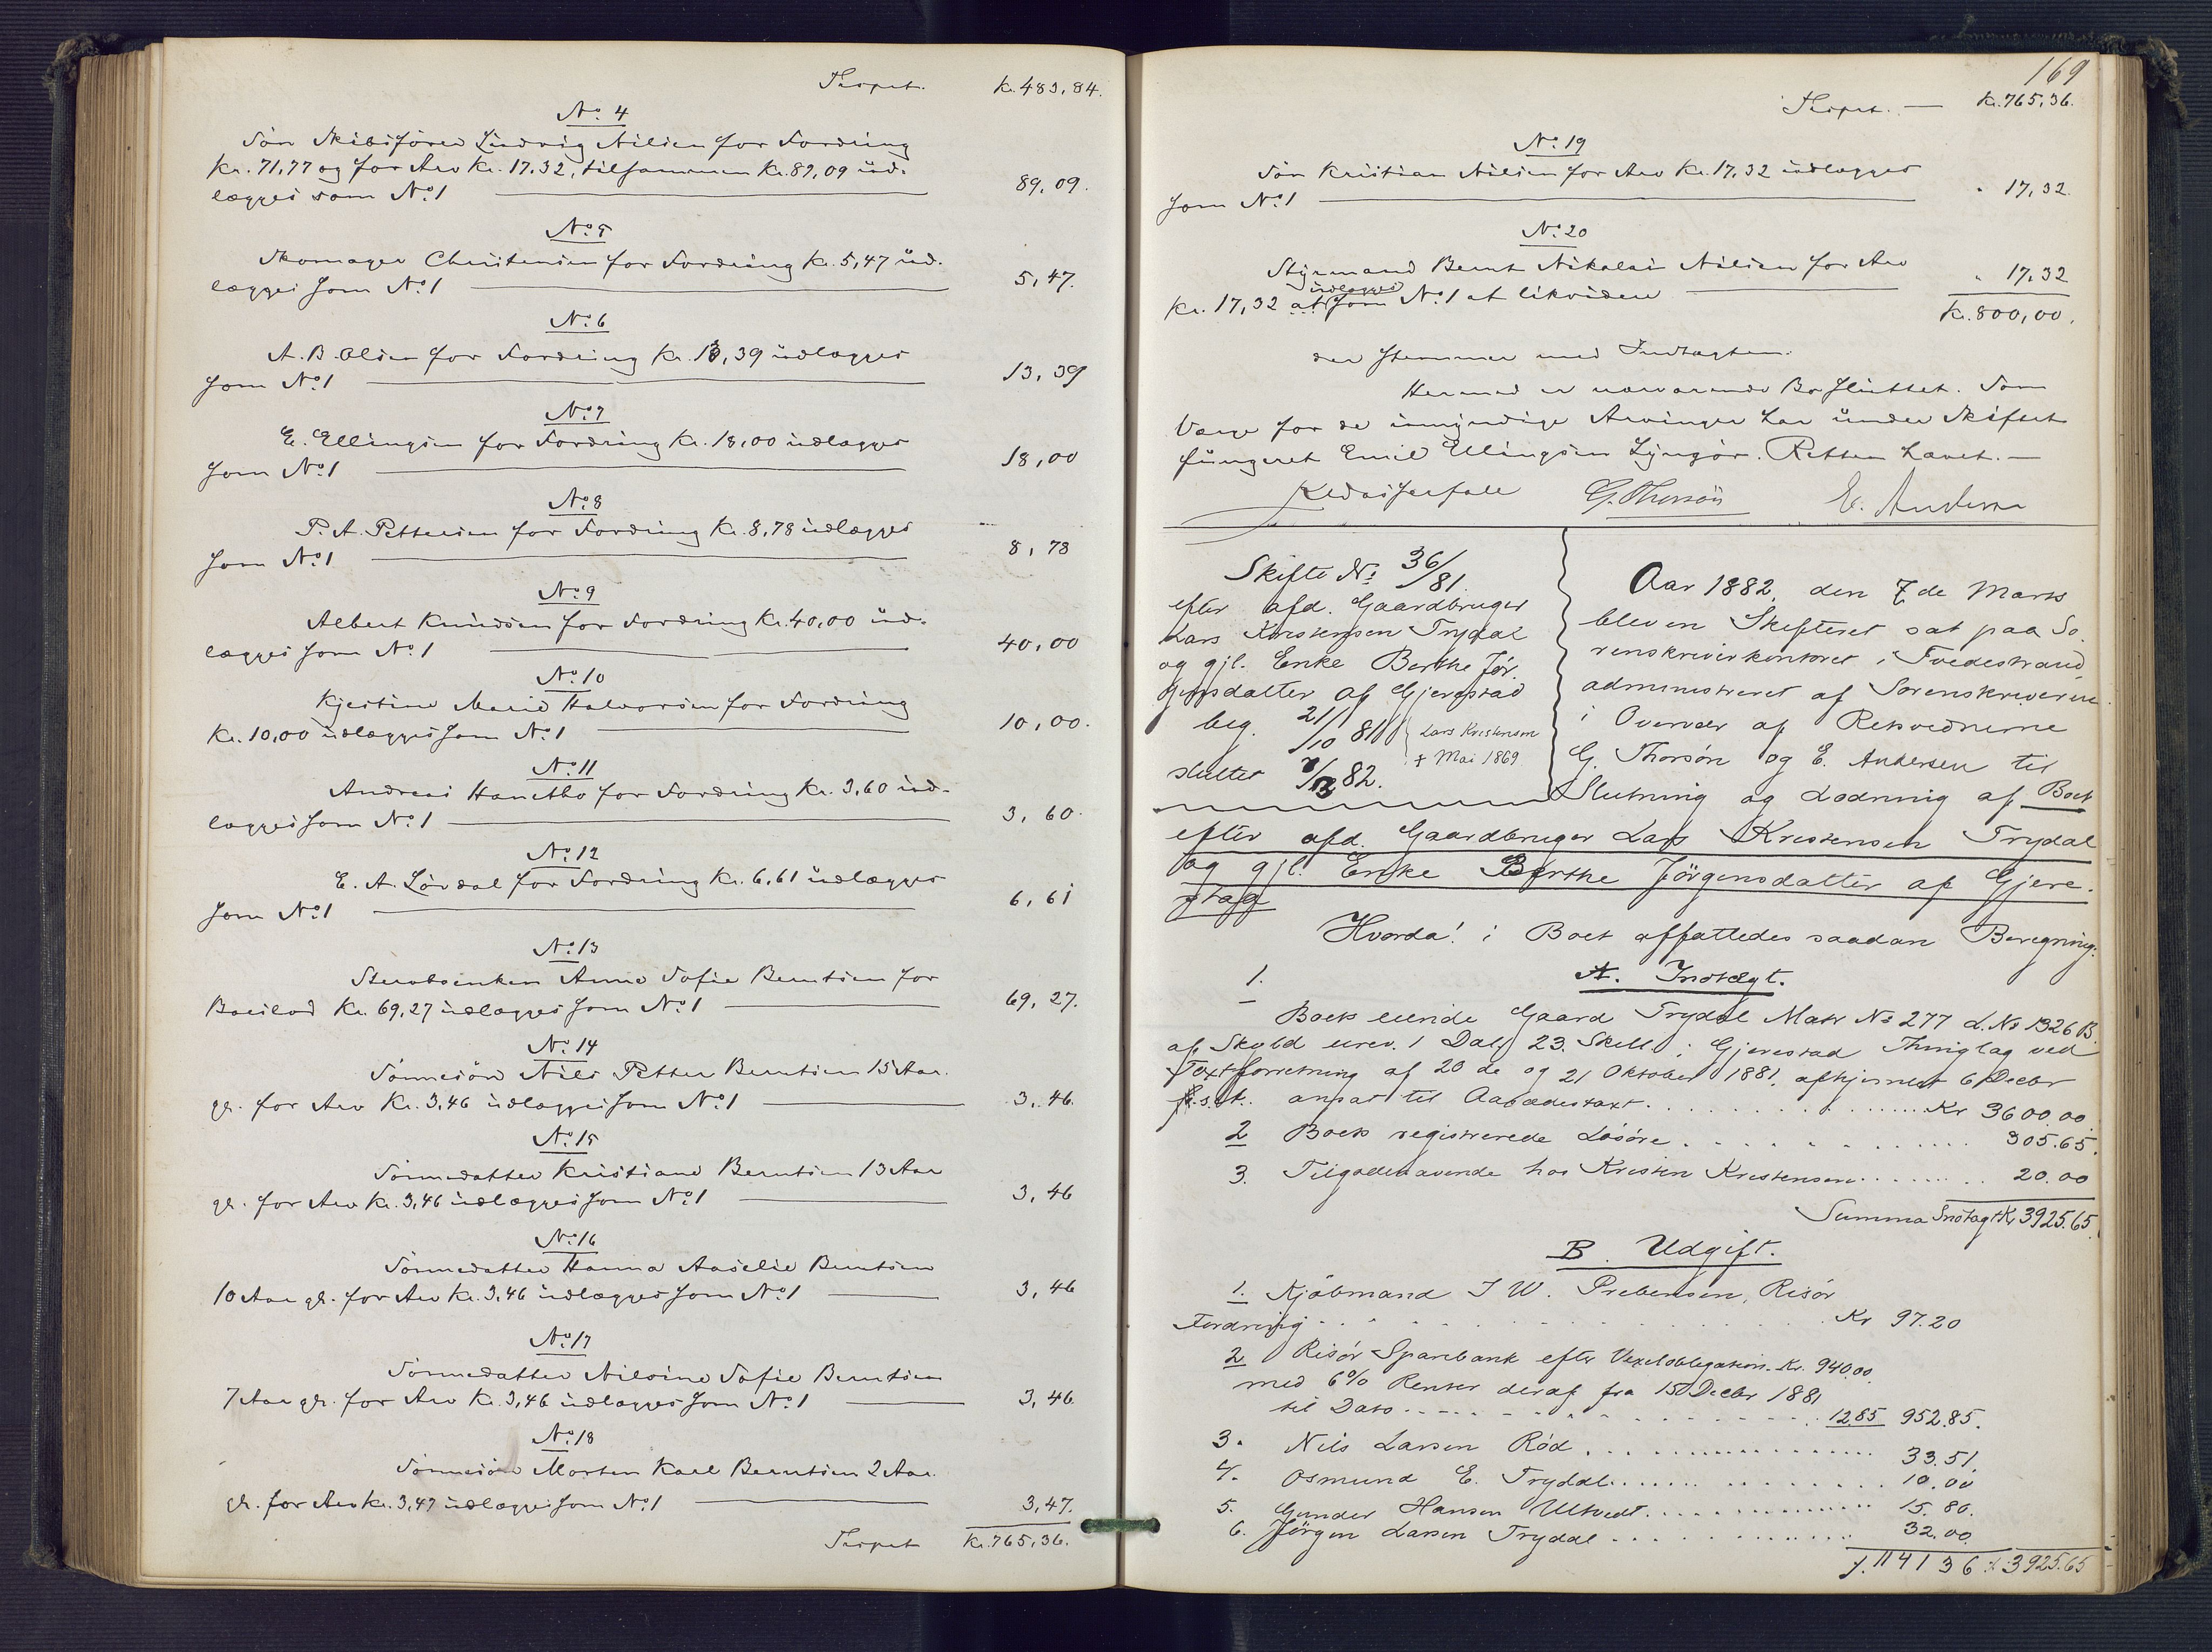 Transpt. Kr. 483,84.
No. 4
Søn Skibsfører Ludvig Nilsen for Fordring
Kr. 71,77 og for Arv Kr. 17.32, tilsammen Kr. 89,09 ud-
lægges som No. 1 89,09.
No. 5
Skomager Christensen for Fordring Kr. 5,47 ud-
lægges som No. 1 5,47.
No. 6
A. B. Olsen for Fordring Kr. 13,39 udlægges
som No. 1 13,39
No. 7
E. Ellingsen for Fordring Kr. 18,00 udlægges
som No. 1 18,00
No. 8
P. A. Pettersen for Fordring Kr. 8,78 udlægges
som No. 1 8,78
No. 9
Albert Knudsen for Fordring Kr. 40,00 ud-
lægges som No. 1 40,00
No. 10
Kjestine Marie Halvorsen for Fordring
Kr. 10,00 udlægges som No. 1 10,00.
No. 11
Andreas Hanctho for Fordring Kr. 3,60 ud-
lægges som No. 1 3,60.
No. 12
E. A. Løvdal for Fordring Kr. 6,61 udlægges
som No. 1 6,61
No. 13
Stervboenken Anne Sofie Berntsen for
Boeslod Kr. 69,27 udlægges som No. 1 69,27.
No. 14
Sønnesøn Nils Petter Berntsen 15 Aar
gl. for Arv Kr. 3,46 udlægges som No. 1 3,46.
No. 15
Sønnedatter Kristiane Berntsen 13 Aar
gl. for Arv Kr. 3,46 udlægges som No. 1 3,46
No. 16
Sønnedatter Hanna Aaselie Berntsen
10 Aar gl. for Arv Kr. 3,46 udlægges som No. 1 3,46
No. 17
Sønnedatter Nilsine Sofie Berntsen
7 Aar gl. for Arv Kr. 3,46 udlægges som No. 1 3,46
No. 18
Sønnesøn Morten Karl Berntsen 2 Aar
gl. for Arv Kr. 3,47 udlægges som No. 1 3,47.
Transpt Kr. 765,36.
169
Transpt. — Kr. 765,36.
No. 19
Søn Kristian Nilsen for Arv Kr. 17,32 udlægges
som No. 1 " 17,32.
No. 20
Styrmand Bernt Nikolai Nilsen for Arv
udlægges
Kr. 17,32 at som No. 1 at likvidere " 17,32
Kr. 800,00.
der stemmer med Indtægten.
Hermed er nærværende Bo sluttet. Som
Værge for de umyndige Arvinger har under Skiftet
fungeret Emil Ellingsen Lyngør. Retten hævet. —
G. Thorsøn E. Andersen
Skifte No. 36/81
efter afd. Gaardbruger
Lars Kristensen Trydal
og gjl. Enke Berthe Jør-
gensdatter af Gjerestad
beg. 21/10 81
Lars Kristensen
† Mai 1869
sluttet 7/3 82.
Aar 1882, den 7de Marts
blev en Skifteret sat paa So-
renskriverkontoret i Tvedestrand,
administreret af Sorenskriveren
i Overvær af Retsvidnerne
G. Thorsøn og E. Andersen til
Slutning og Lodning af Boet
efter afd. Gaardbruger Lars Kristensen Trydal
og gjl. Enke Berthe Jörgensdatter af Gjere-
stad
Hvorda! i Boet affattedes saadan Beregning:
A. Indtægt.
1.
Boets eiende Gaard Trydal Matr No 277 L. No 1326 B.
af Skyld urev. 1 Dalr 23 Skill. i Gjerestad Thinglag ved
Taxtforretning af 20de og 21 Oktober 1881, afhjemlet 6 Decbr
s. A. ansat til Aasædestaxt Kr 3600.00.
2 Boets registrerede Løsøre 305.65.
3. Tilgodehavende hos Kristen Kristensen 20.00
Summa Indtægt Kr 3925.65.
B. Udgift.
1. Kjøbmand J W. Prebensen, Risør
Fordring Kr 97.20
2 Risør Sparebank efter Vexelobligation Kr. 940.00.
med 6% Renter deraf fra 15 Decbr 1881
til Dato 12.85 952.85.
3. Nils Larsen Rød 33.51.
4. Osmund E. Trydal 10.00
5. Gunder Hansen Ulkvedt 15.80.
6. Jörgen Larsen Trydal 32.00.
1141 36 3925.65